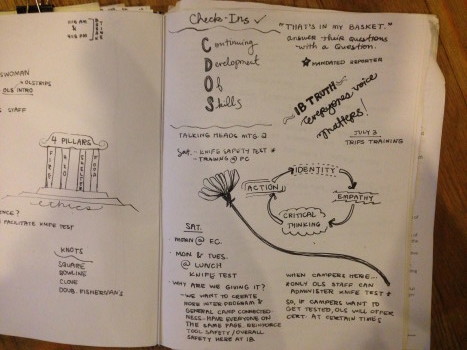 9:15 PM
&
SWOMAN
OLS INTRO
STAFF
4 PILLARS
FIRST
AID
SHELTER
FOOD
ethics
NCE?
FACILITATE KNIFE TEST
KNOTS
SQUARE
BOWLINE
CLOVE
DOUB. FISHERMAN'S
Check-Ins ✓
Continuing
Development
Of
Skills
TALKING HEADS MTG
Sat. - KNIFE SAFETY TEST *
- TRAINING @ FC
"THAT'S IN MY BASKET."
answer their questions
with a question.
MANDATED REPORTER
IB TRUTH
everyones voice
matters!
JULY 3
TRIPS TRAINING
IDENTITY
ACTION
EMPATHY
CRITICAL
THINKING
SAT.
@ F.C.
- MON & TUES.
@ LUNCH
KNIFE TEST
- WHY ARE WE GIVING IT?
- WE WANT TO CREATE
MORE INTER PROGRAM &
GENERAL CAMP CONNECTED-
NESS - HAVE EVERYONE ON
THE SAME PAGE. REINFORCE
TOOL SAFETY / OVERALL
SAFETY HERE AT IB.
WHEN CAMPERS HERE...
* ONLY OLS STAFF CAN
ADMINISTER KNIFE TEST *
SO, IF CAMPERS WANT TO
GET TESTED, OLS WILL OFFER
CERT. AT CERTAIN TIMES